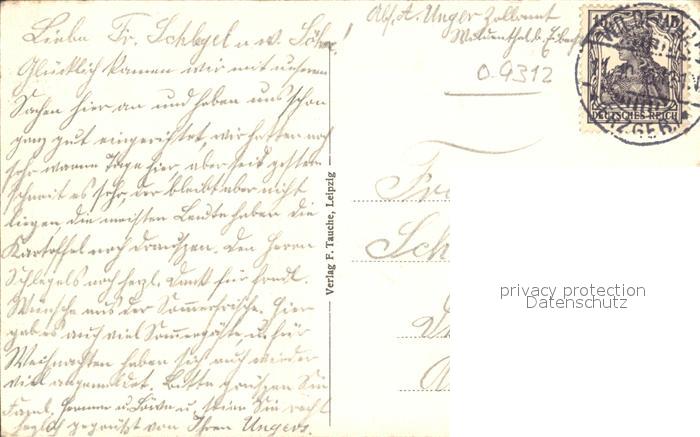 Liebe Fr. Schlegel u. w. Söhne!
Glücklich kamen wir mit unseren
Sachen hier an und haben uns schon
ganz gut eingerichtet, wir hatten noch
sehr warme Tage hier, aber seit gestern
schneit es sehr, der bleibt aber nicht
liegen, die meisten Leute haben die
Kartoffel noch draussen. Den Herrn
Schlegels noch herzl. Dank für frdl.
Wünsche aus der Sommerfrische. Hier
gab es auch viel Sommergäste, u. für
Weihnachten haben sich auch wieder
viel angemeldet. Bitte grüssen Sie
Faml. u. u. seien Sie recht
herzlich gegrüsst von Ihren Ungers.
Abs. A. Unger Zollamt
Wildenthal b.
O.9312
15
DEUTSCHES REICH
ERZGEB.
Verlag F. Tauche, Leipzig
Fr
Sch
privacy protection
Datenschutz